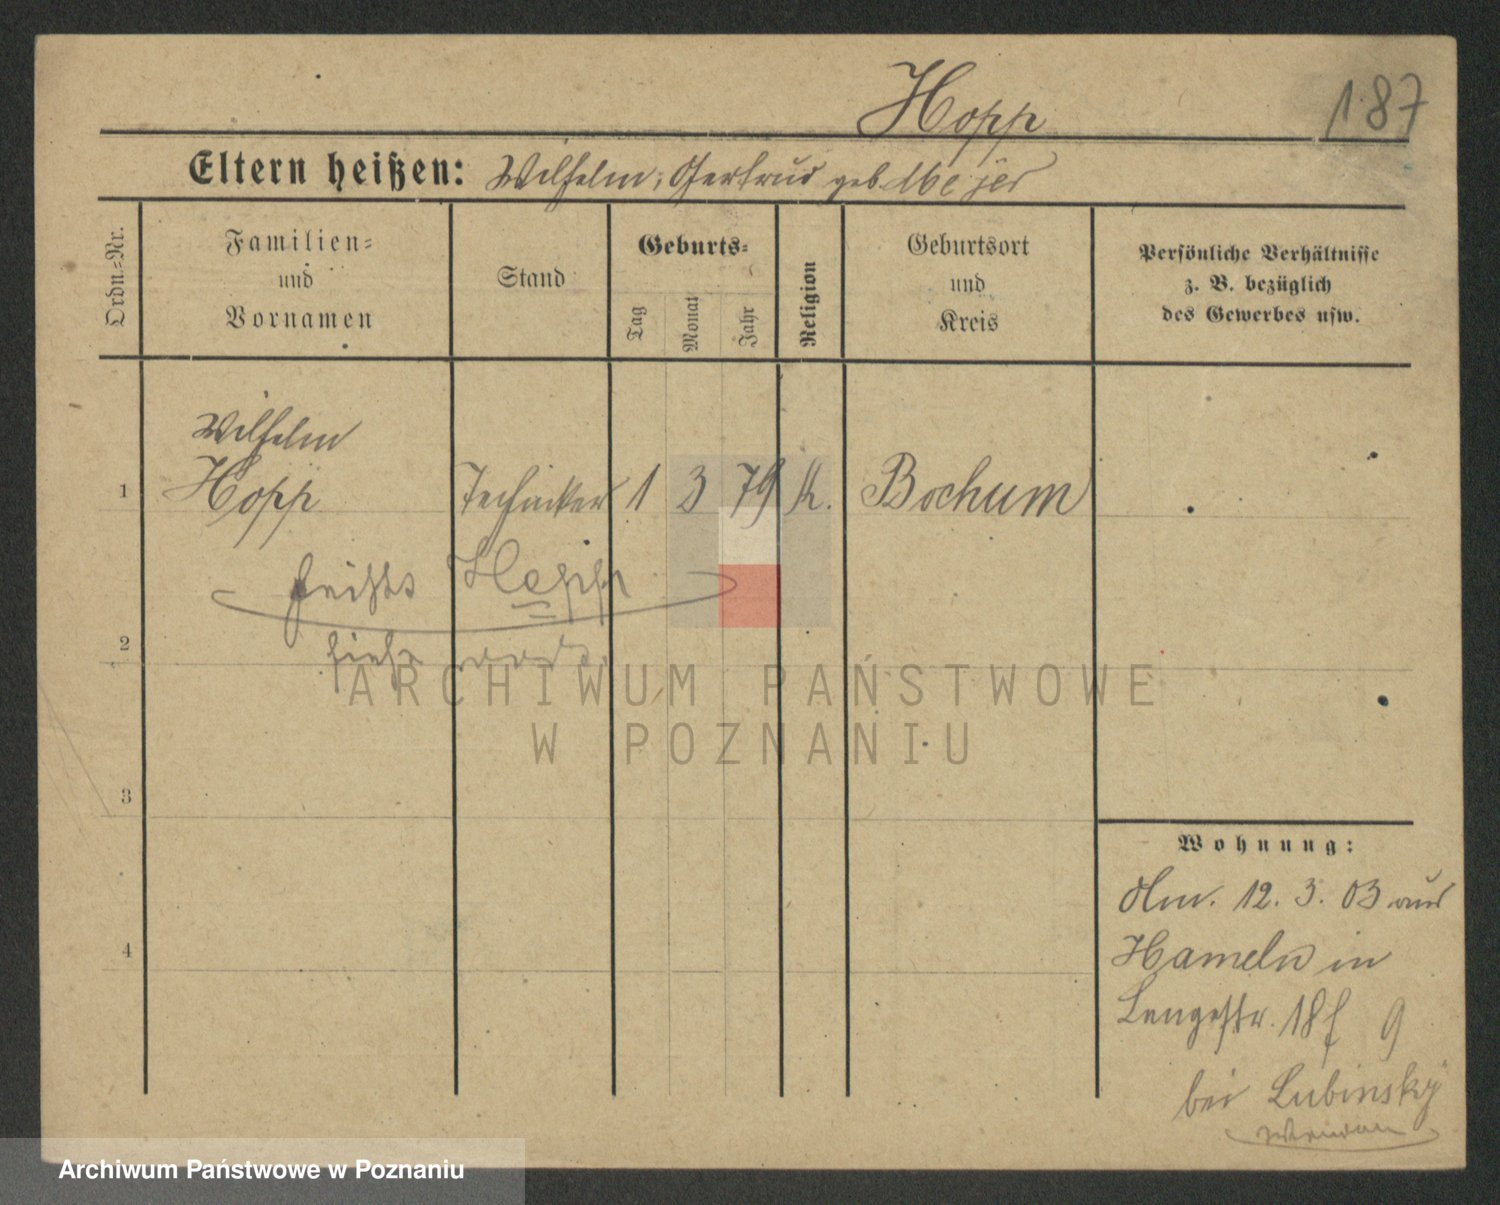 Hopp
187
Eltern heißen: Wilhelm, Gertrud geb. Meyer
Ordn.=Nr.
Familien=
und
Vornamen
Stand
Geburts=
Tag
Monat
Jahr
Religion
Geburtsort
und
Kreis
Persönliche Verhältnisse
z. B. bezüglich
des Gewerbes usw.
Wilhelm
1 Hopp Techniker 1 3 79 K. Bochum
heißt Hepp
siehe
2
ARCHIWUM PAŃSTWOWE
W POZNANIU
3
Wohnung:
Am. 12. 3. 03 aus
Hameln in
4
Langestr. 18f 9
bei Lubinsky
Wenden
Archiwum Państwowe w Poznaniu